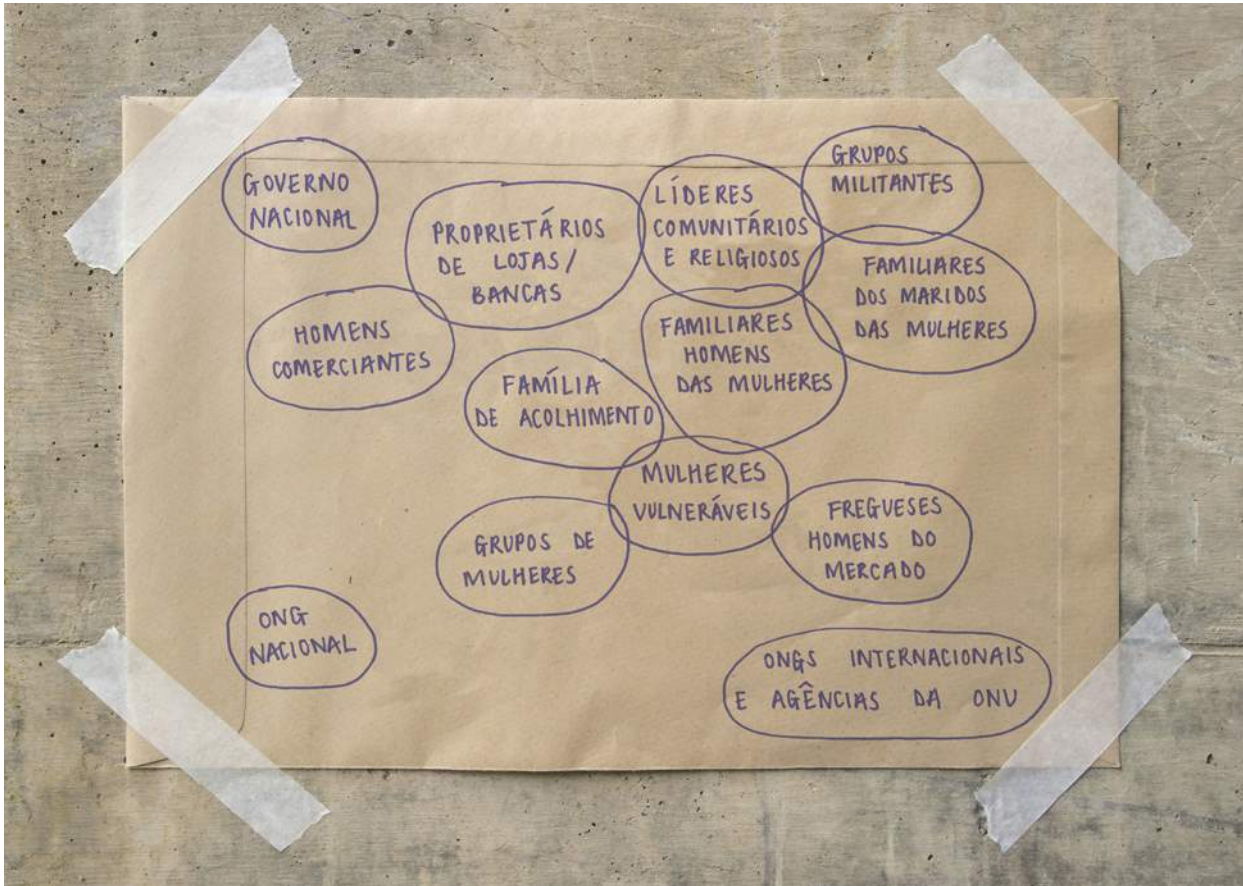 GOVERNO
NACIONAL
PROPRIETÁRIOS
DE LOJAS/
BANCAS
LÍDERES
COMUNITÁRIOS
E RELIGIOSOS
GRUPOS
MILITANTES
HOMENS
COMERCIANTES
FAMÍLIA
DE ACOLHIMENTO
FAMILIARES
HOMENS
DAS MULHERES
FAMILIARES
DOS MARIDOS
DAS MULHERES
MULHERES
VULNERÁVEIS
GRUPOS DE
MULHERES
FREGUESES
HOMENS DO
MERCADO
ONG
NACIONAL
ONGS INTERNACIONAIS
E AGÊNCIAS DA ONU